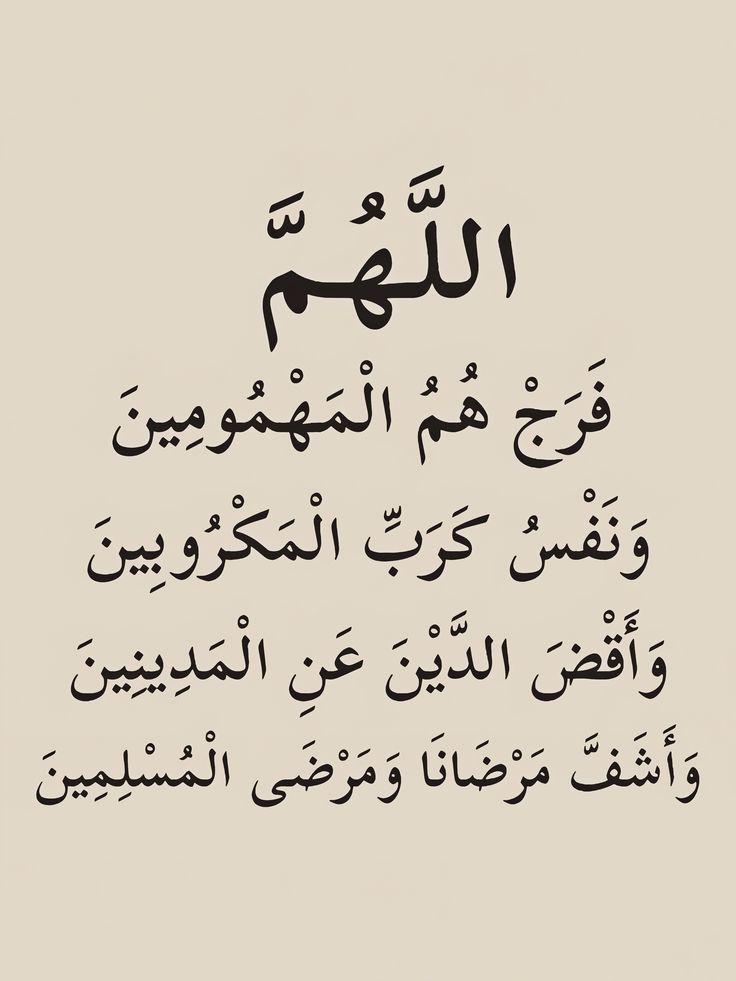 اللَّهُمَّ
فَرَجْ هُمُ الْمَهْمُومِينَ
وَنَفْسُ كَرَبِّ الْمَكْرُوبِينَ
وَأَقْضَ الدَّيْنَ عَنِ الْمَدِينِينَ
وَأَشَفَّ مَرْضَانَا وَمَرْضَى الْمُسْلِمِينَ